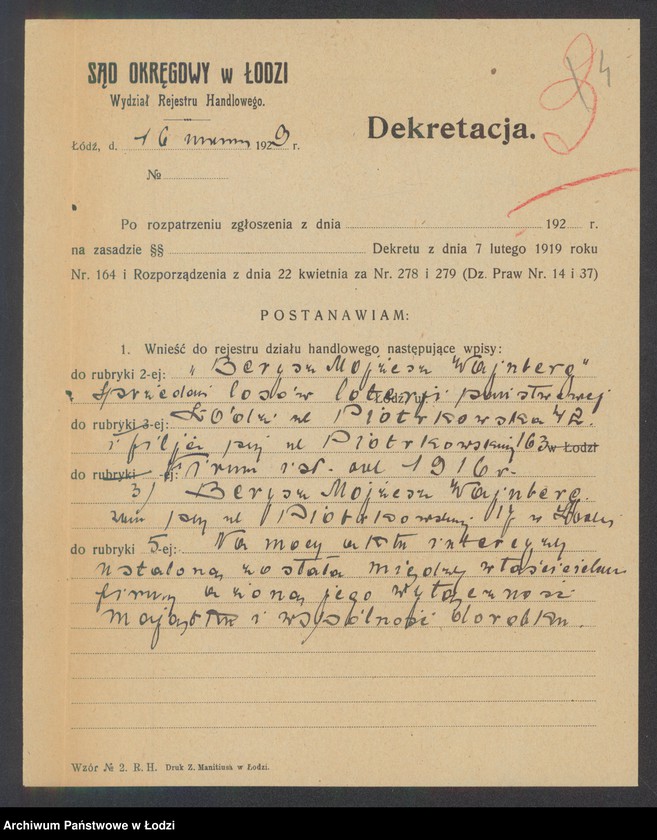 SĄD OKRĘGOWY w ŁODZI
Wydział Rejestru Handlowego.
Dekretacja.
4
Łódź, d. 16 1929 r.
№
Po rozpatrzeniu zgłoszenia z dnia 192 r.
na zasadzie §§ Dekretu z dnia 7 lutego 1919 roku
Nr. 164 i Rozporządzenia z dnia 22 kwietnia za Nr. 278 i 279 (Dz. Praw Nr. 14 i 37)
POSTANAWIAM:
1. Wnieść do rejestru działu handlowego następujące wpisy:
do rubryki 2-ej: „Berysz Mojżesz Wajnberg"
Sprzedaż losów loterji państwowej
do rubryki 3-ej: Łódź ul Piotrkowska 42.
i filja przy ul Piotrkowskiej 163 w Łodzi
do rubryki ej: Firma ist. od 1916 r.
3) Berysz Mojżesz Wajnberg.
zam przy ul Piotrkowskiej 17 w Łodzi
do rubryki 5-ej: Na mocy aktu intercyzy
ustaloną została między właścicielem
firmy a żoną jego wyłączność
majątku i wspólność dorobku.
Wzór № 2. R. H. Druk Z. Manitiusa w Łodzi.
Archiwum Państwowe w Łodzi